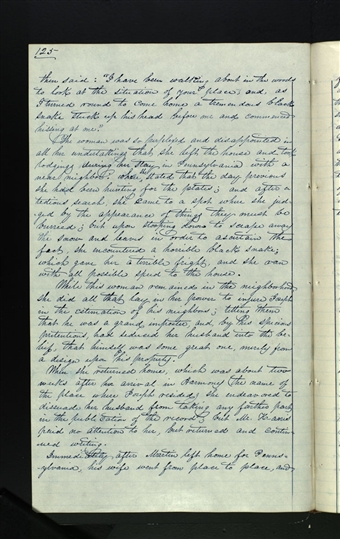 125
then said: "I have been walking about in the woods
to look at the situation of your place; and as
I turned round to come home a tremendous black
snake stuck up his head before me and commenced
hissing at me."
The woman was so perplexed and disappointed in
all her undertakings that she left the house and took
lodging during her stay in Pennsylvania with a
near neighbor, stated that the day previous
she had been hunting for the plates; and after a
tedious search she came to a spot where she jud-
ged by the appearance of things they must be
burried; but upon stooping down to scrape away
the snow and leaves in order to ascertain the
fact, she encountered a horrible black snake;
which gave her a terrible fright, and she ran
with all possible speed to the house.
While this woman remained in the neighborhood
she did all that lay in her power to injure Joseph
in the estimation of his neighbors; telling them
that he was a grand imposter and by his specious
pretentions had seduced her husband into the be-
lief that himself was some great one, merely from
a design upon his property.
When she returned home, which was about two
weeks after her arrival in Harmony the name of
the place where Joseph resided; she endeavored to
disuade her husband from taking any farther part
in the publication of the record; but Mr. Harris
paid no attention to her, but returned and contin-
ued writing.
Immediately after Martin left home for Penns-
ylvania, his wife went from place to place, and